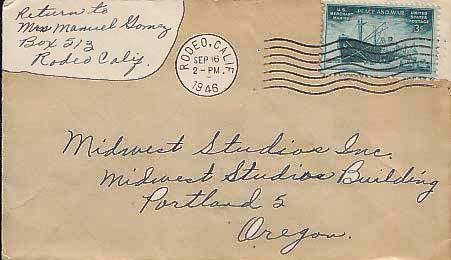 Return to
Mrs Manuel Gomez
Box 513
Rodeo Calif.
RODEO, CALIF.
SEP 16
2 - PM
1946
U.S. MERCHANT MARINE
PEACE AND WAR
UNITED STATES POSTAGE
3¢
Midwest Studios Inc.
Midwest Studios Building
Portland 5
Oregon.